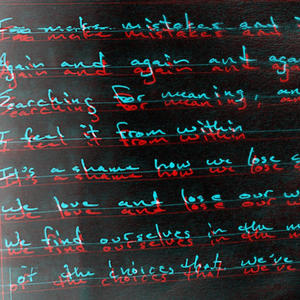 Too make mistakes and
Again and again and aga
Searching for meaning, an
I feel it from within
It's a shame how we lose
We love and lose our w
We find ourselves in the m
Of the choices that we've